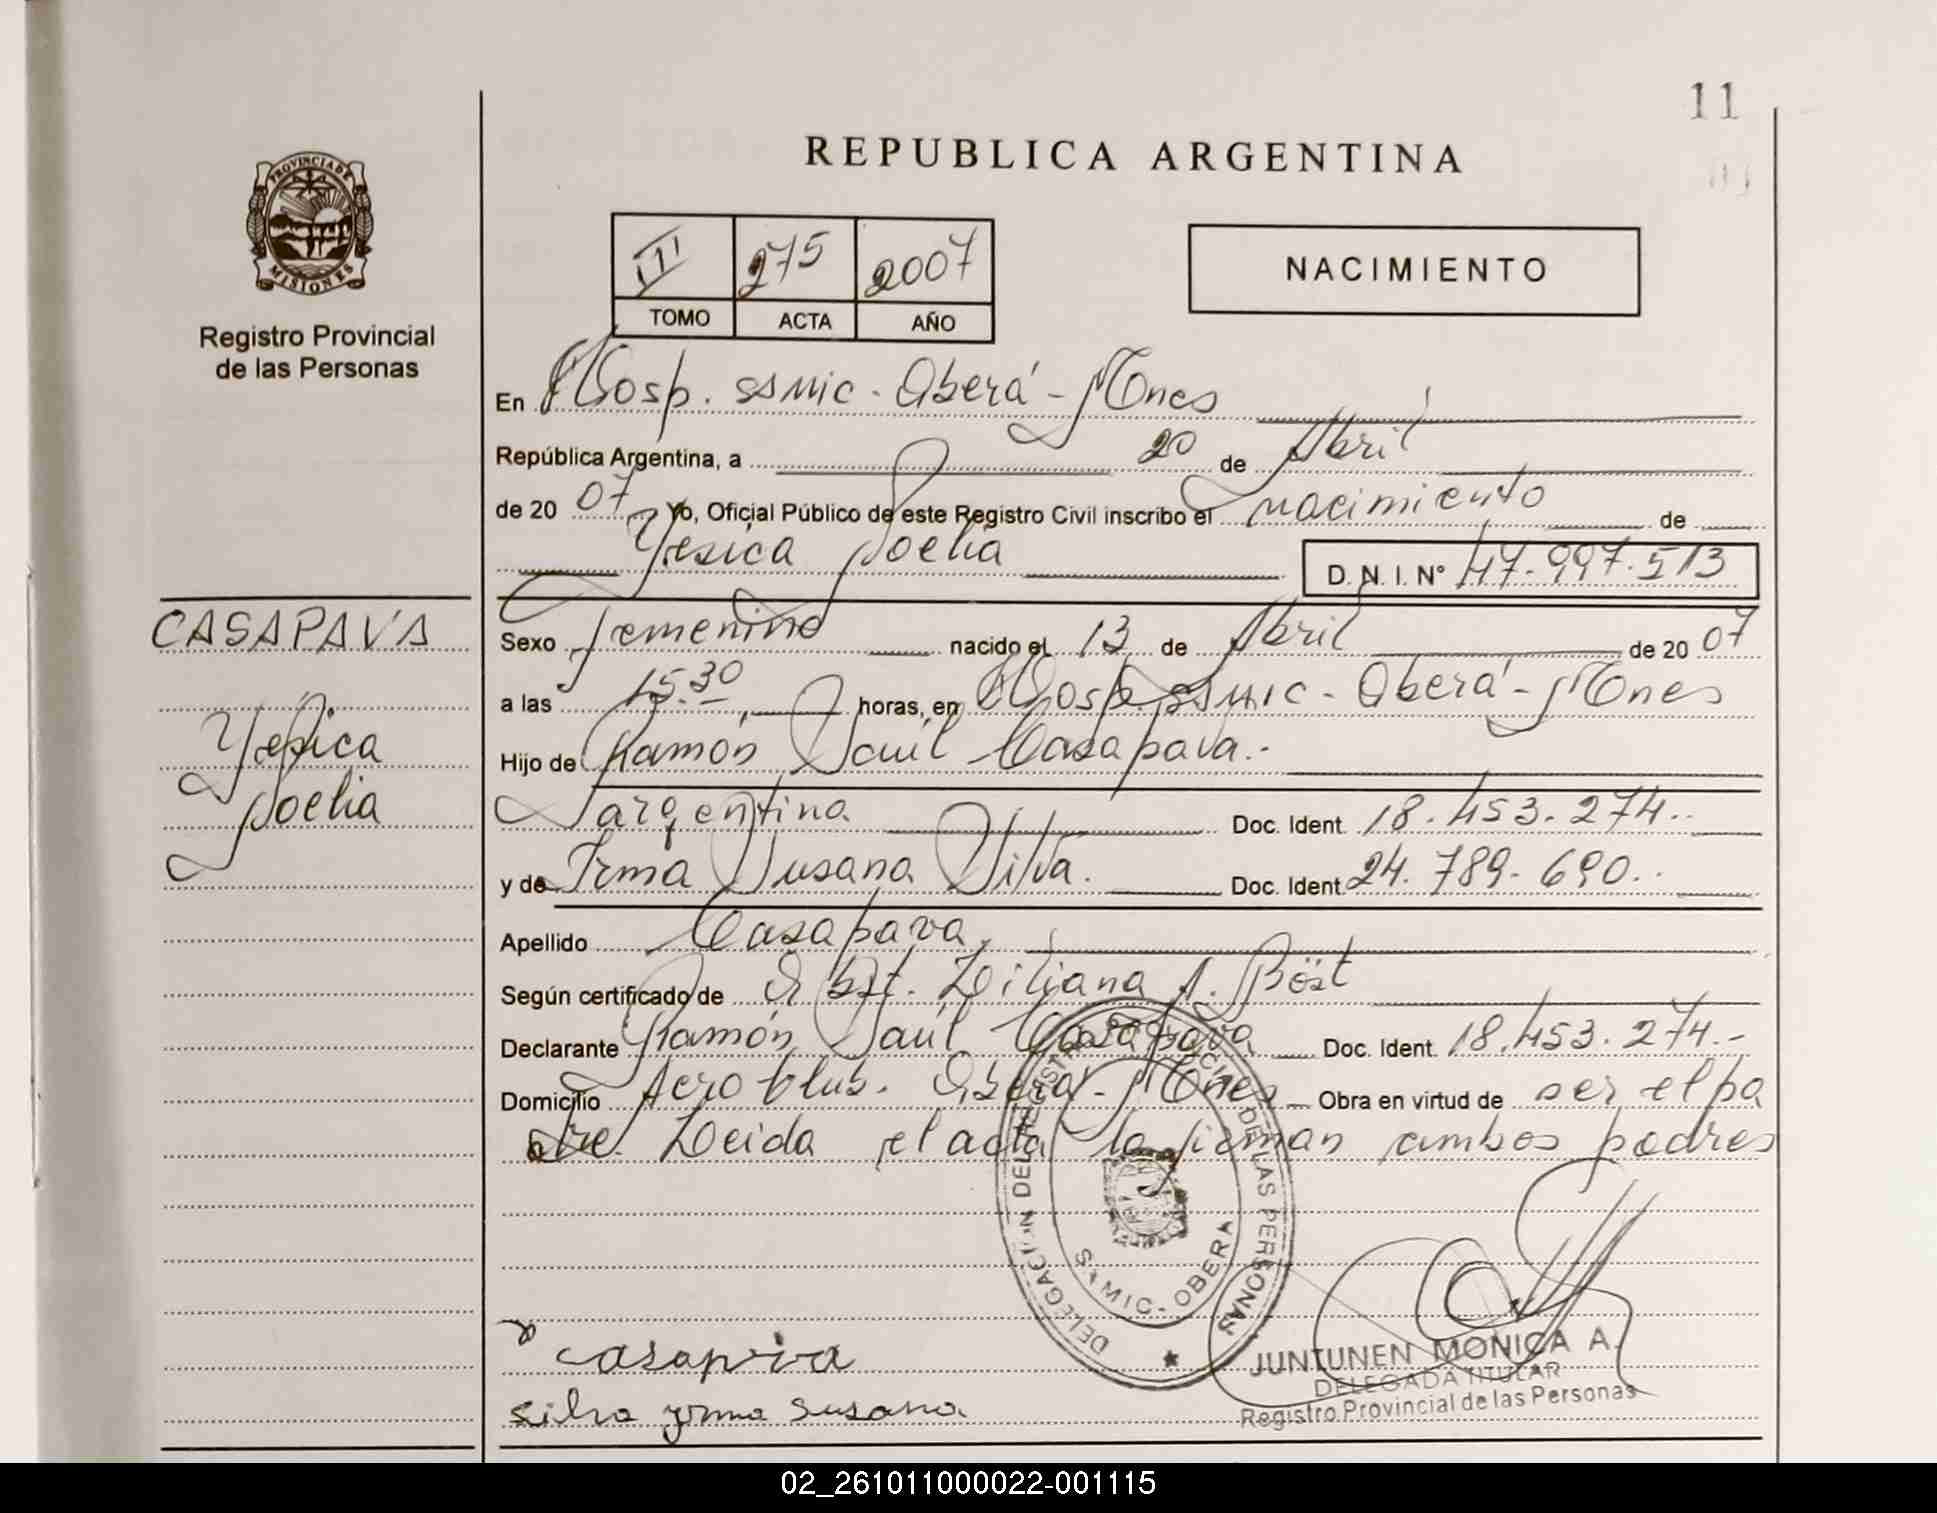 11
REPUBLICA ARGENTINA
PROVINCIA DE
MISIONES
Registro Provincial
de las Personas
III 275 2007
TOMO ACTA AÑO
NACIMIENTO
En Hosp. ssmic - Oberá - Mnes
República Argentina, a 20 de Abril
de 20 07 Yo, Oficial Público de este Registro Civil inscribo el nacimiento de
Yesica Noelia D. N. I. N° 47.997.513
CASAPAVA
Yesica
Noelia
Sexo femenino nacido el 13 de Abril de 20 07
a las 15.30 horas, en Hosp. ssmic - Oberá - Mnes
Hijo de Ramón Saúl Casapava.-
argentina Doc. Ident. 18.453.274.-
y de Irma Susana Silva. Doc. Ident. 24.789.690..
Apellido Casapava,
Según certificado de Obst. Liliana A. Böst
Declarante Ramón Saúl Casapava Doc. Ident. 18.453.274.-
Domicilio Aero Club. Oberá - Mnes Obra en virtud de ser el pa
dre. Leida el acta la firman ambos padres
DELEGACION DEL REGISTRO PROVINCIAL DE LAS PERSONAS
SAMIC - OBERA
casapava
silva yrma susana
JUNTUNEN MONICA A.
DELEGADA TITULAR
Registro Provincial de las Personas
02_261011000022-001115